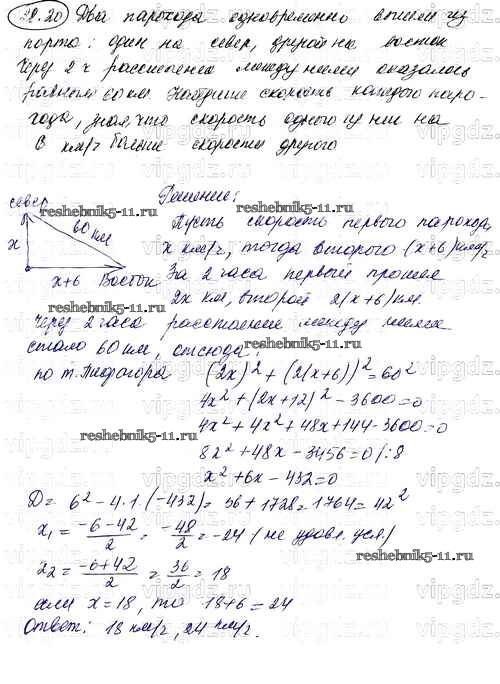 29.20 Два парохода одновременно вышли из
порта: один на север, другой на восток
Через 2 ч расстояние между ними оказалось
равным 60 км Найдите скорость каждого паро-
хода, зная, что скорость одного из них на
6 км/ч больше скорости другого
Решение:
север
60 км
x
x+6 Восток
Пусть скорость первого парохода,
x км/ч, тогда второго (x+6) км/ч
За 2 часа первый прошел
2x км, второй 2(x+6) км.
Через 2 часа расстояние между ними
стало 60 км, отсюда:
по т. Пифагора (2x)² + (2(x+6))² = 60²
4x² + (2x+12)² - 3600 = 0
4x² + 4x² + 48x + 144 - 3600 = 0
8x² + 48x - 3456 = 0 /:8
x² + 6x - 432 = 0
D = 6² - 4·1·(-432) = 36 + 1728 = 1764 = 42²
x₁ = -6-42/2 = -48/2 = -24 (не удовл. усл.)
x₂ = -6+42/2 = 36/2 = 18
если x = 18, то 18+6 = 24
Ответ: 18 км/ч, 24 км/ч.
reshebnik5-11.ru
reshebnik5-11.ru
reshebnik5-11.ru
reshebnik5-11.ru
reshebnik5-11.ru
vipgdz.ru